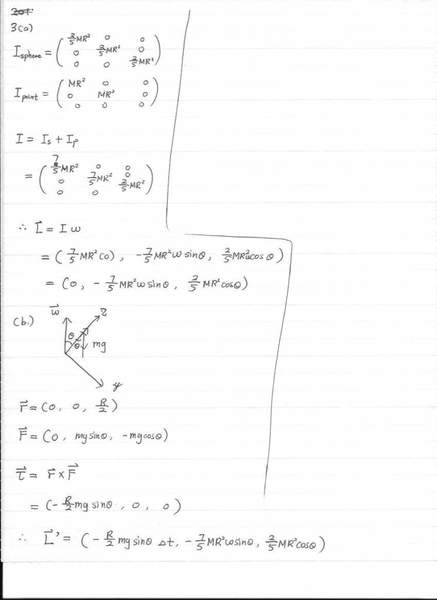 3(a)
I_sphere = ( 2/5 MR² 0 0
0 2/5 MR² 0
0 0 2/5 MR² )
I_point = ( MR² 0 0
0 MR² 0
0 0 0 )
I = I_s + I_p
= ( 7/5 MR² 0 0
0 7/5 MR² 0
0 0 2/5 MR² )
∴ L⃗ = I ω
= ( 7/5 MR²(0) , -7/5 MR² ω sinθ , 2/5 MR² ω cosθ )
= (0, -7/5 MR² ω sinθ , 2/5 MR² cosθ )
(b.)
ω⃗ z
θ
mg
y
r⃗ = (0, 0, R/2 )
F⃗ = (0, mg sinθ , -mg cosθ )
τ⃗ = r⃗ × F⃗
= (-R/2 mg sinθ , 0 , 0 )
∴ L⃗' = ( -R/2 mg sinθ Δt, -7/5 MR² ω sinθ , 2/5 MR² cosθ )